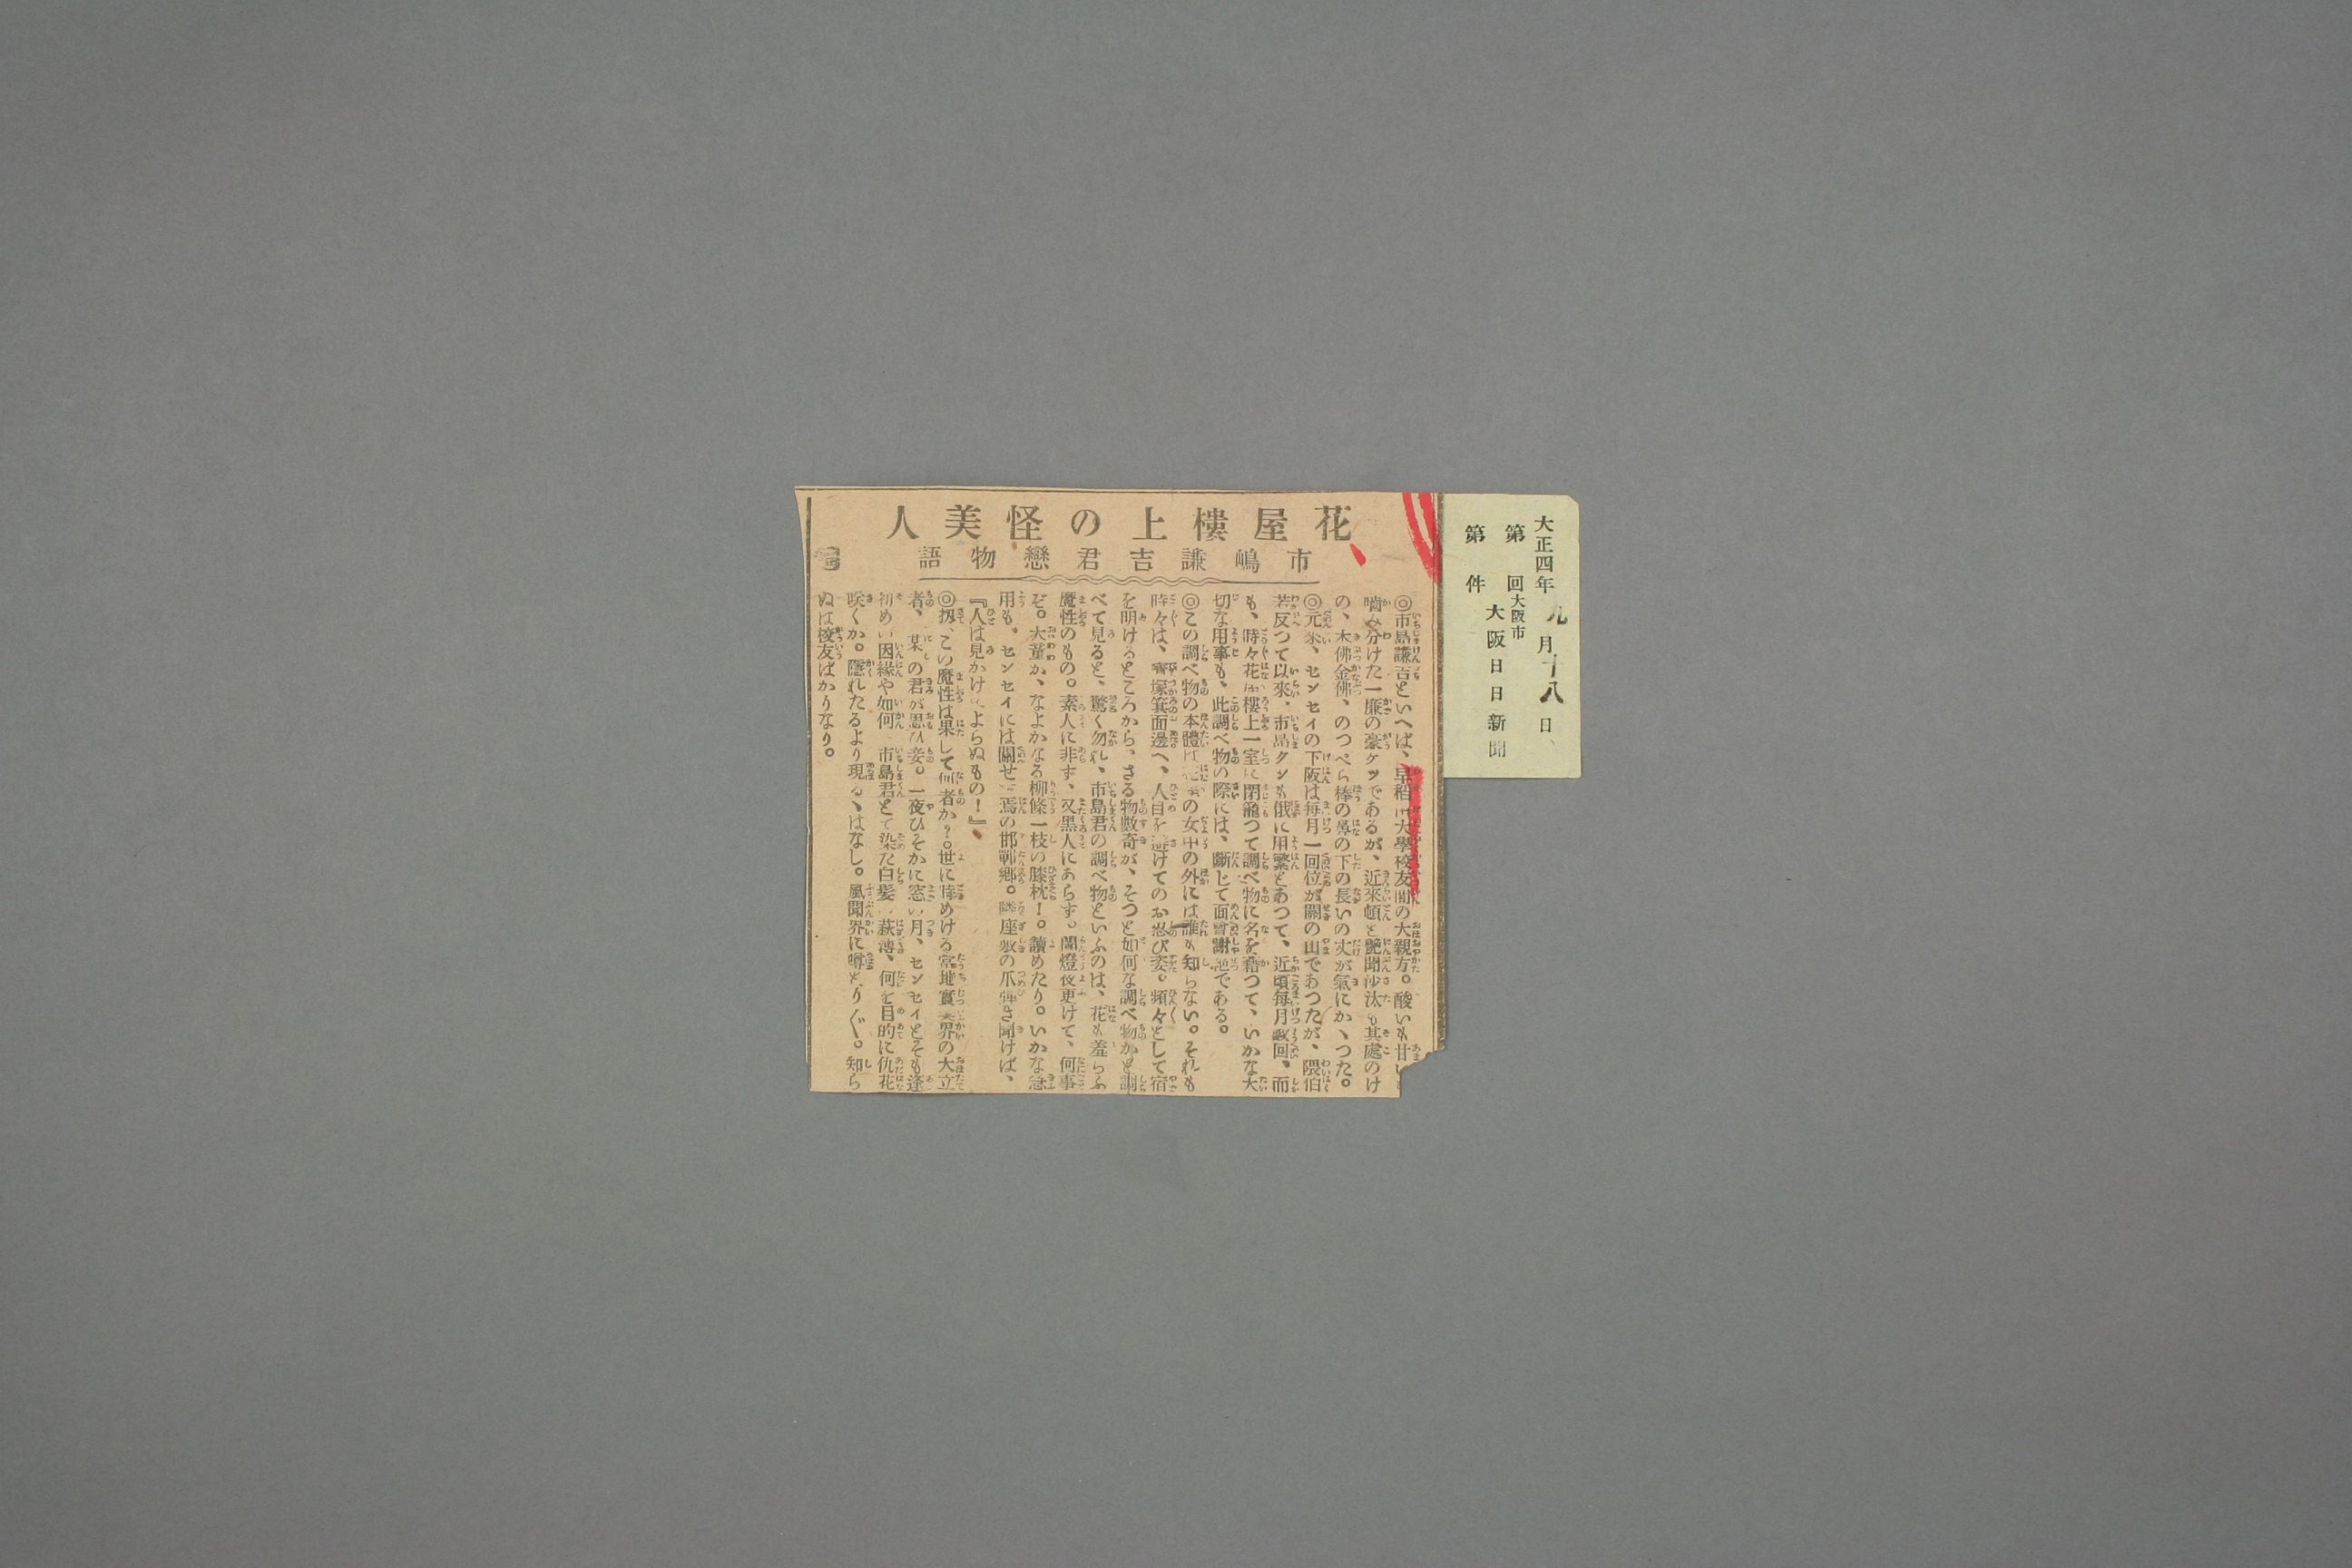 大正四年九月十八日
第 回大阪市
大阪日日新聞
第 件
花屋樓上の怪美人
市嶋謙吉君戀物語
◎市島謙吉といへば、早稻田大學校友間の大親方。酸いも甘い
噛み分けた一廉の豪ケツであるが、近來頓と艶聞沙汰も其處のけ
の、木佛金佛、のつぺら棒の鼻の下の長いの丈が氣にかゝつた。
◎元來、センセイの下阪は毎月一回位が關の山であつたが、隈伯
若反つて以來、市島クンも俄に用繁とあつて、近頃毎月數回、而
も、時々花屋樓上一室に閉籠つて調べ物に名を藉つて、いかな大
切な用事も、此調べ物の際には、斷じて面會謝絶である。
◎この調べ物の本體は花屋の女中の外には誰も知らない。それも
時々は、寶塚箕面邊へ、人目を避けてのお忍び姿。頻々として宿
を明けるところから、さる物數奇が、そつと如何な調べ物かと調
べて見ると、驚く勿れ、市島君の調べ物といふのは、花も羞らふ
魔性のもの。素人に非ず、又黒人にあらず。蘭燈夜更けて、何事
ぞ。大董か、なよかなる柳條一枝の膝枕！。讀めたり。いかな急
用も、センセイには關せず焉の邯鄲郷。隣座敷の爪彈き聞けば、
『人は見かけによらぬもの！』、
◎扨、この魔性は果して何者か？。世に時めける當地實業界の大立
者、某の君が思ひ妾。一夜ひそかに窓の月、センセイとそも逢
初めの因縁や如何。市島君とて染た白髪の萩薄、何を目的に仇花
咲くか。隱れたるより現るゝはなし。風聞界に噂とり〲。知ら
ぬは校友ばかりなり。